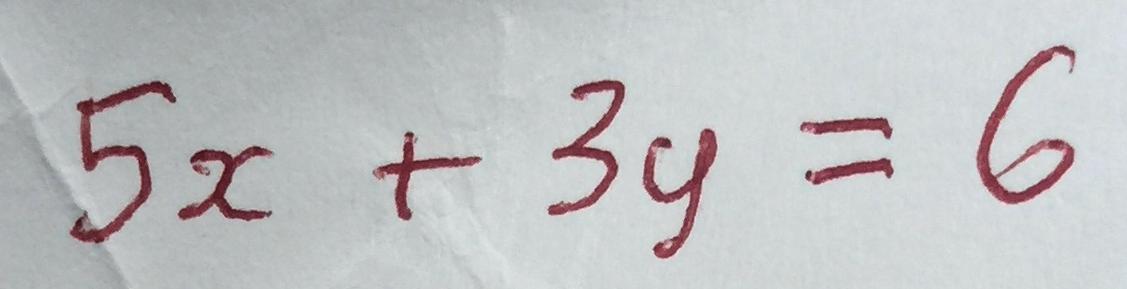 5x + 3y = 6